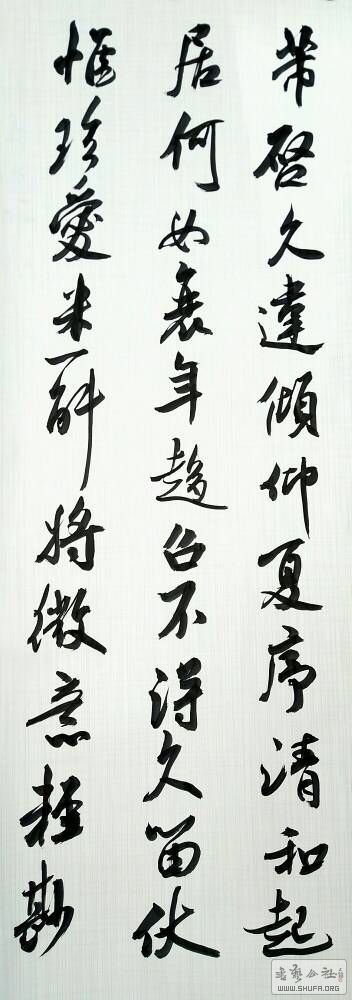 芾啓久違傾仰夏序清和起
居何如衰年趍召不得久留伏
惟珍愛米一斛將微意輕勘
書藝公社
WWW.SHUFA.ORG